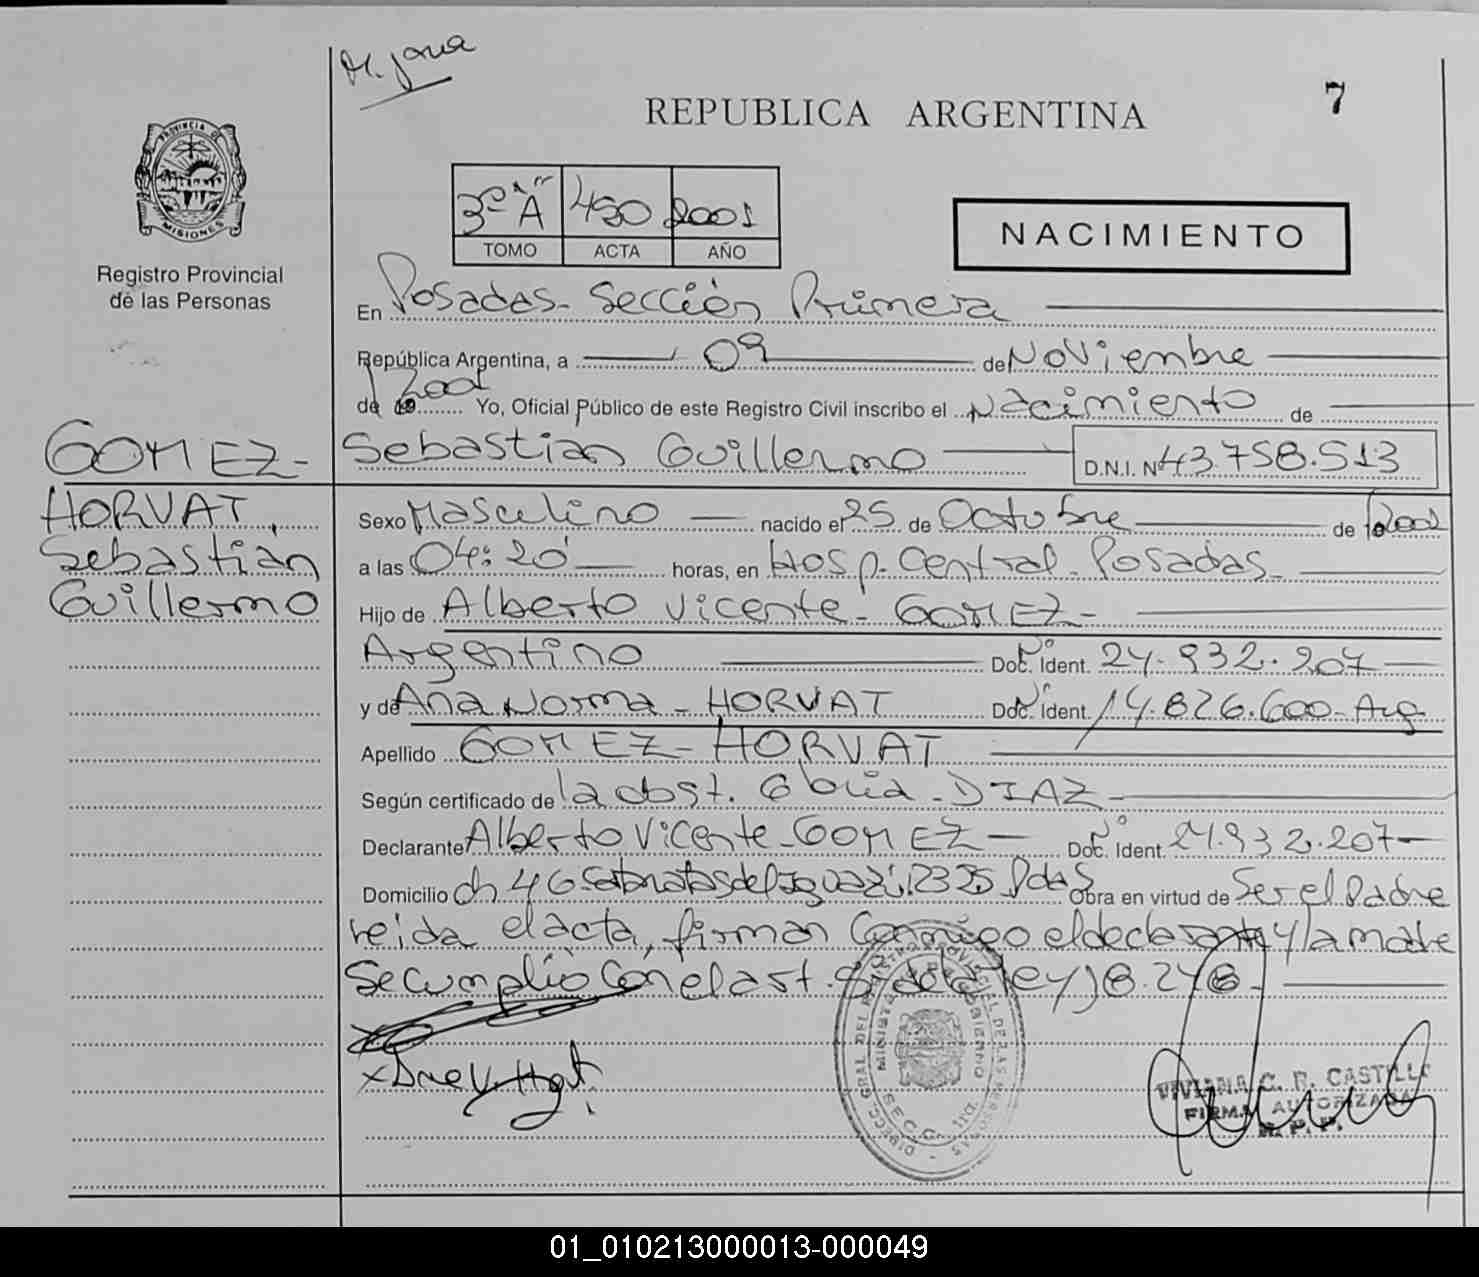 REPUBLICA ARGENTINA
7
3º "A" 450 2001
TOMO ACTA AÑO
NACIMIENTO
PROVINCIA DE
MISIONES
Registro Provincial
de las Personas
En Posadas - Sección Primera
República Argentina, a 09 de Noviembre
de 2001 Yo, Oficial Público de este Registro Civil inscribo el Nacimiento de
Sebastián Guillermo D.N.I. Nº 43.758.513
GOMEZ-
HORVAT,
Sebastián
Guillermo
Sexo Masculino nacido el 25 de Octubre de 2001
a las 04:20 horas, en Hosp. Central - Posadas -
Hijo de Alberto Vicente - GOMEZ -
Argentino Doc. Ident. Nº 24.932.207
y de Ana Norma - HORVAT Doc. Ident. Nº 14.826.600 - Arg.
Apellido GOMEZ - HORVAT
Según certificado de la obst. - DIAZ -
Declarante Alberto Vicente - GOMEZ - Doc. Ident. Nº 24.932.207
Domicilio ch. 46 2325 Pdas Obra en virtud de Ser el Padre
leida el acta, firman Conmigo el declarante y la madre
Se cumplió Con el art. de la ley 18.248 -
DIREC. GRAL. DEL REGISTRO PROVINCIAL DE LAS PERSONAS
MINISTERIO DE GOBIERNO
SECC. 1ra.
VIVIANA C. R. CASTILLO
FIRMA AUTORIZADA
R. P. P.
01_010213000013-000049